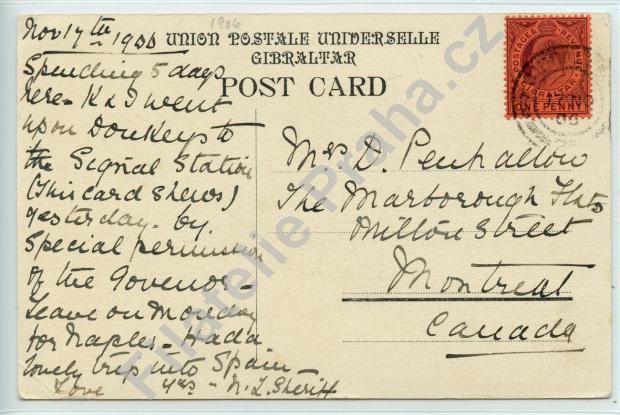 1906
Nov 17th 1906
UNION POSTALE UNIVERSELLE
GIBRALTAR
POST CARD
Spending 5 days
here - K & I went
upon Donkeys to
the Signal Station
(This card shews)
yesterday - by
Special permission
of the Govenor -
leave on Monday
for Naples - Had a
lovely trip into Spain -
Love yrs - N. L. Sheriff
POSTAGE & REVENUE
GIBRALTAR
ONE PENNY
Mrs D. Penhallow
The Marborough Flats
Milton Street
Montreal
Canada
Filatelie Praha.cz